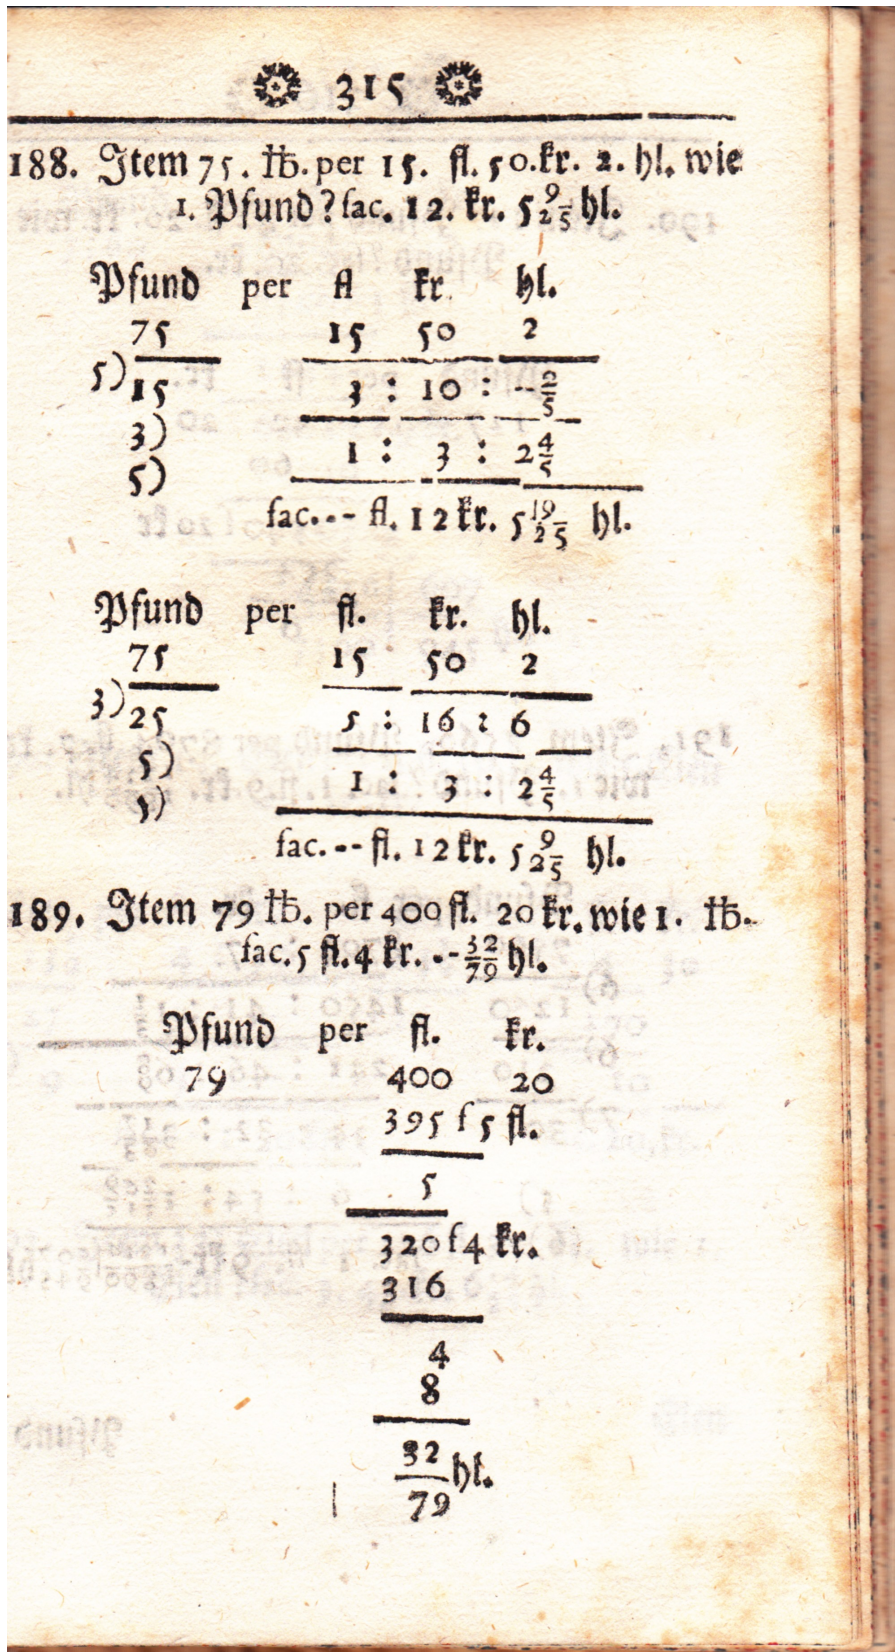 315
188. Item 75. ℔. per 15. fl. 50. kr. 2. hl. wie
1. Pfund? fac. 12. kr. 5 9/25 hl.
Pfund per fl kr hl.
75 15 50 2
5) 15 3 : 10 : -- 2/5
3) 1 : 3 : 2 4/5
5)
fac. -- fl. 12 kr. 5 19/25 hl.
Pfund per fl. kr. hl.
75 15 50 2
3) 25 5 : 16 : 6
5) 1 : 3 : 2 4/5
5)
fac. -- fl. 12 kr. 5 9/25 hl.
189. Item 79 ℔. per 400 fl. 20 kr. wie 1. ℔.
fac. 5 fl. 4 kr. -- 32/79 hl.
Pfund per fl. kr.
79 400 20
395 ſ 5 fl.
5
320 ſ 4 kr.
316
4
8
32/79 hl.